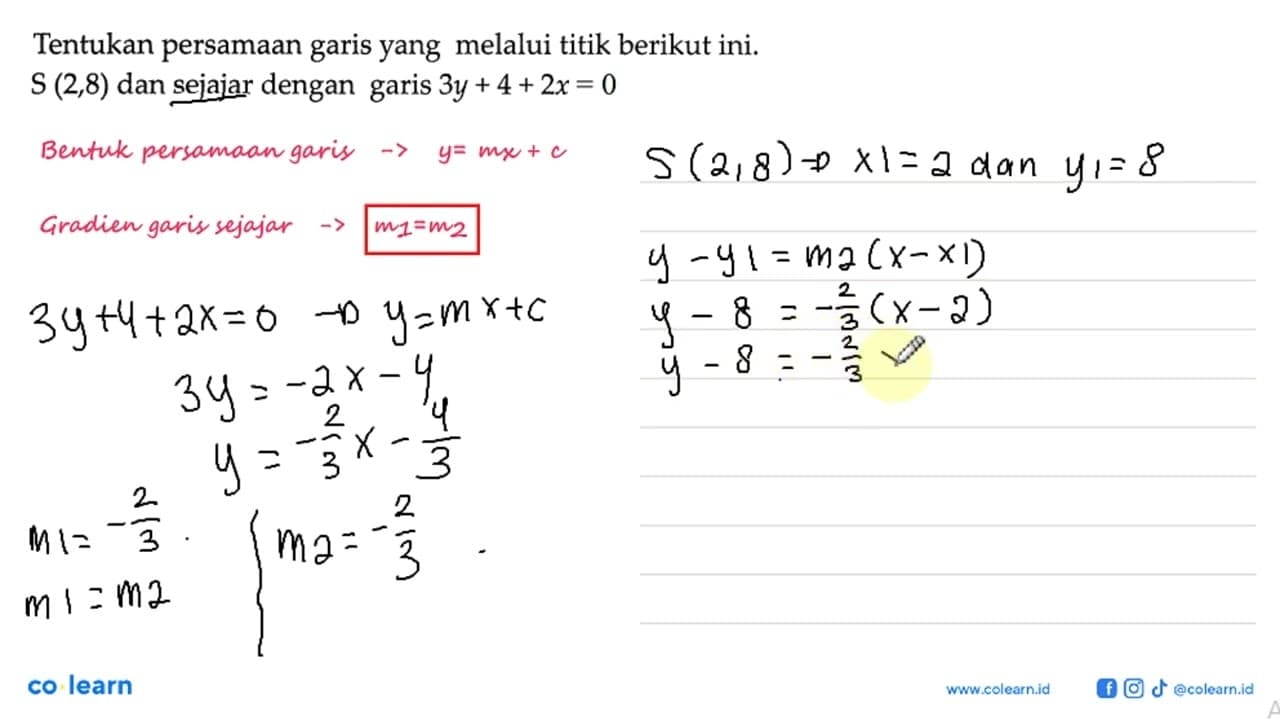 Tentukan persamaan garis yang melalui titik berikut ini.
S (2,8) dan sejajar dengan garis 3y + 4 + 2x = 0
Bentuk persamaan garis -> y= mx + c
Gradien garis sejajar -> m1=m2
3y+4+2x=0 → y=mx+c
3y = -2x - 4
y = -2/3 x - 4/3
m1= -2/3 .
m1=m2
m2= -2/3 .
S(2,8) → x1=2 dan y1=8
y - y1 = m2(x-x1)
y - 8 = -2/3 (x-2)
y - 8 = -2/3
co learn
www.colearn.id
@colearn.id